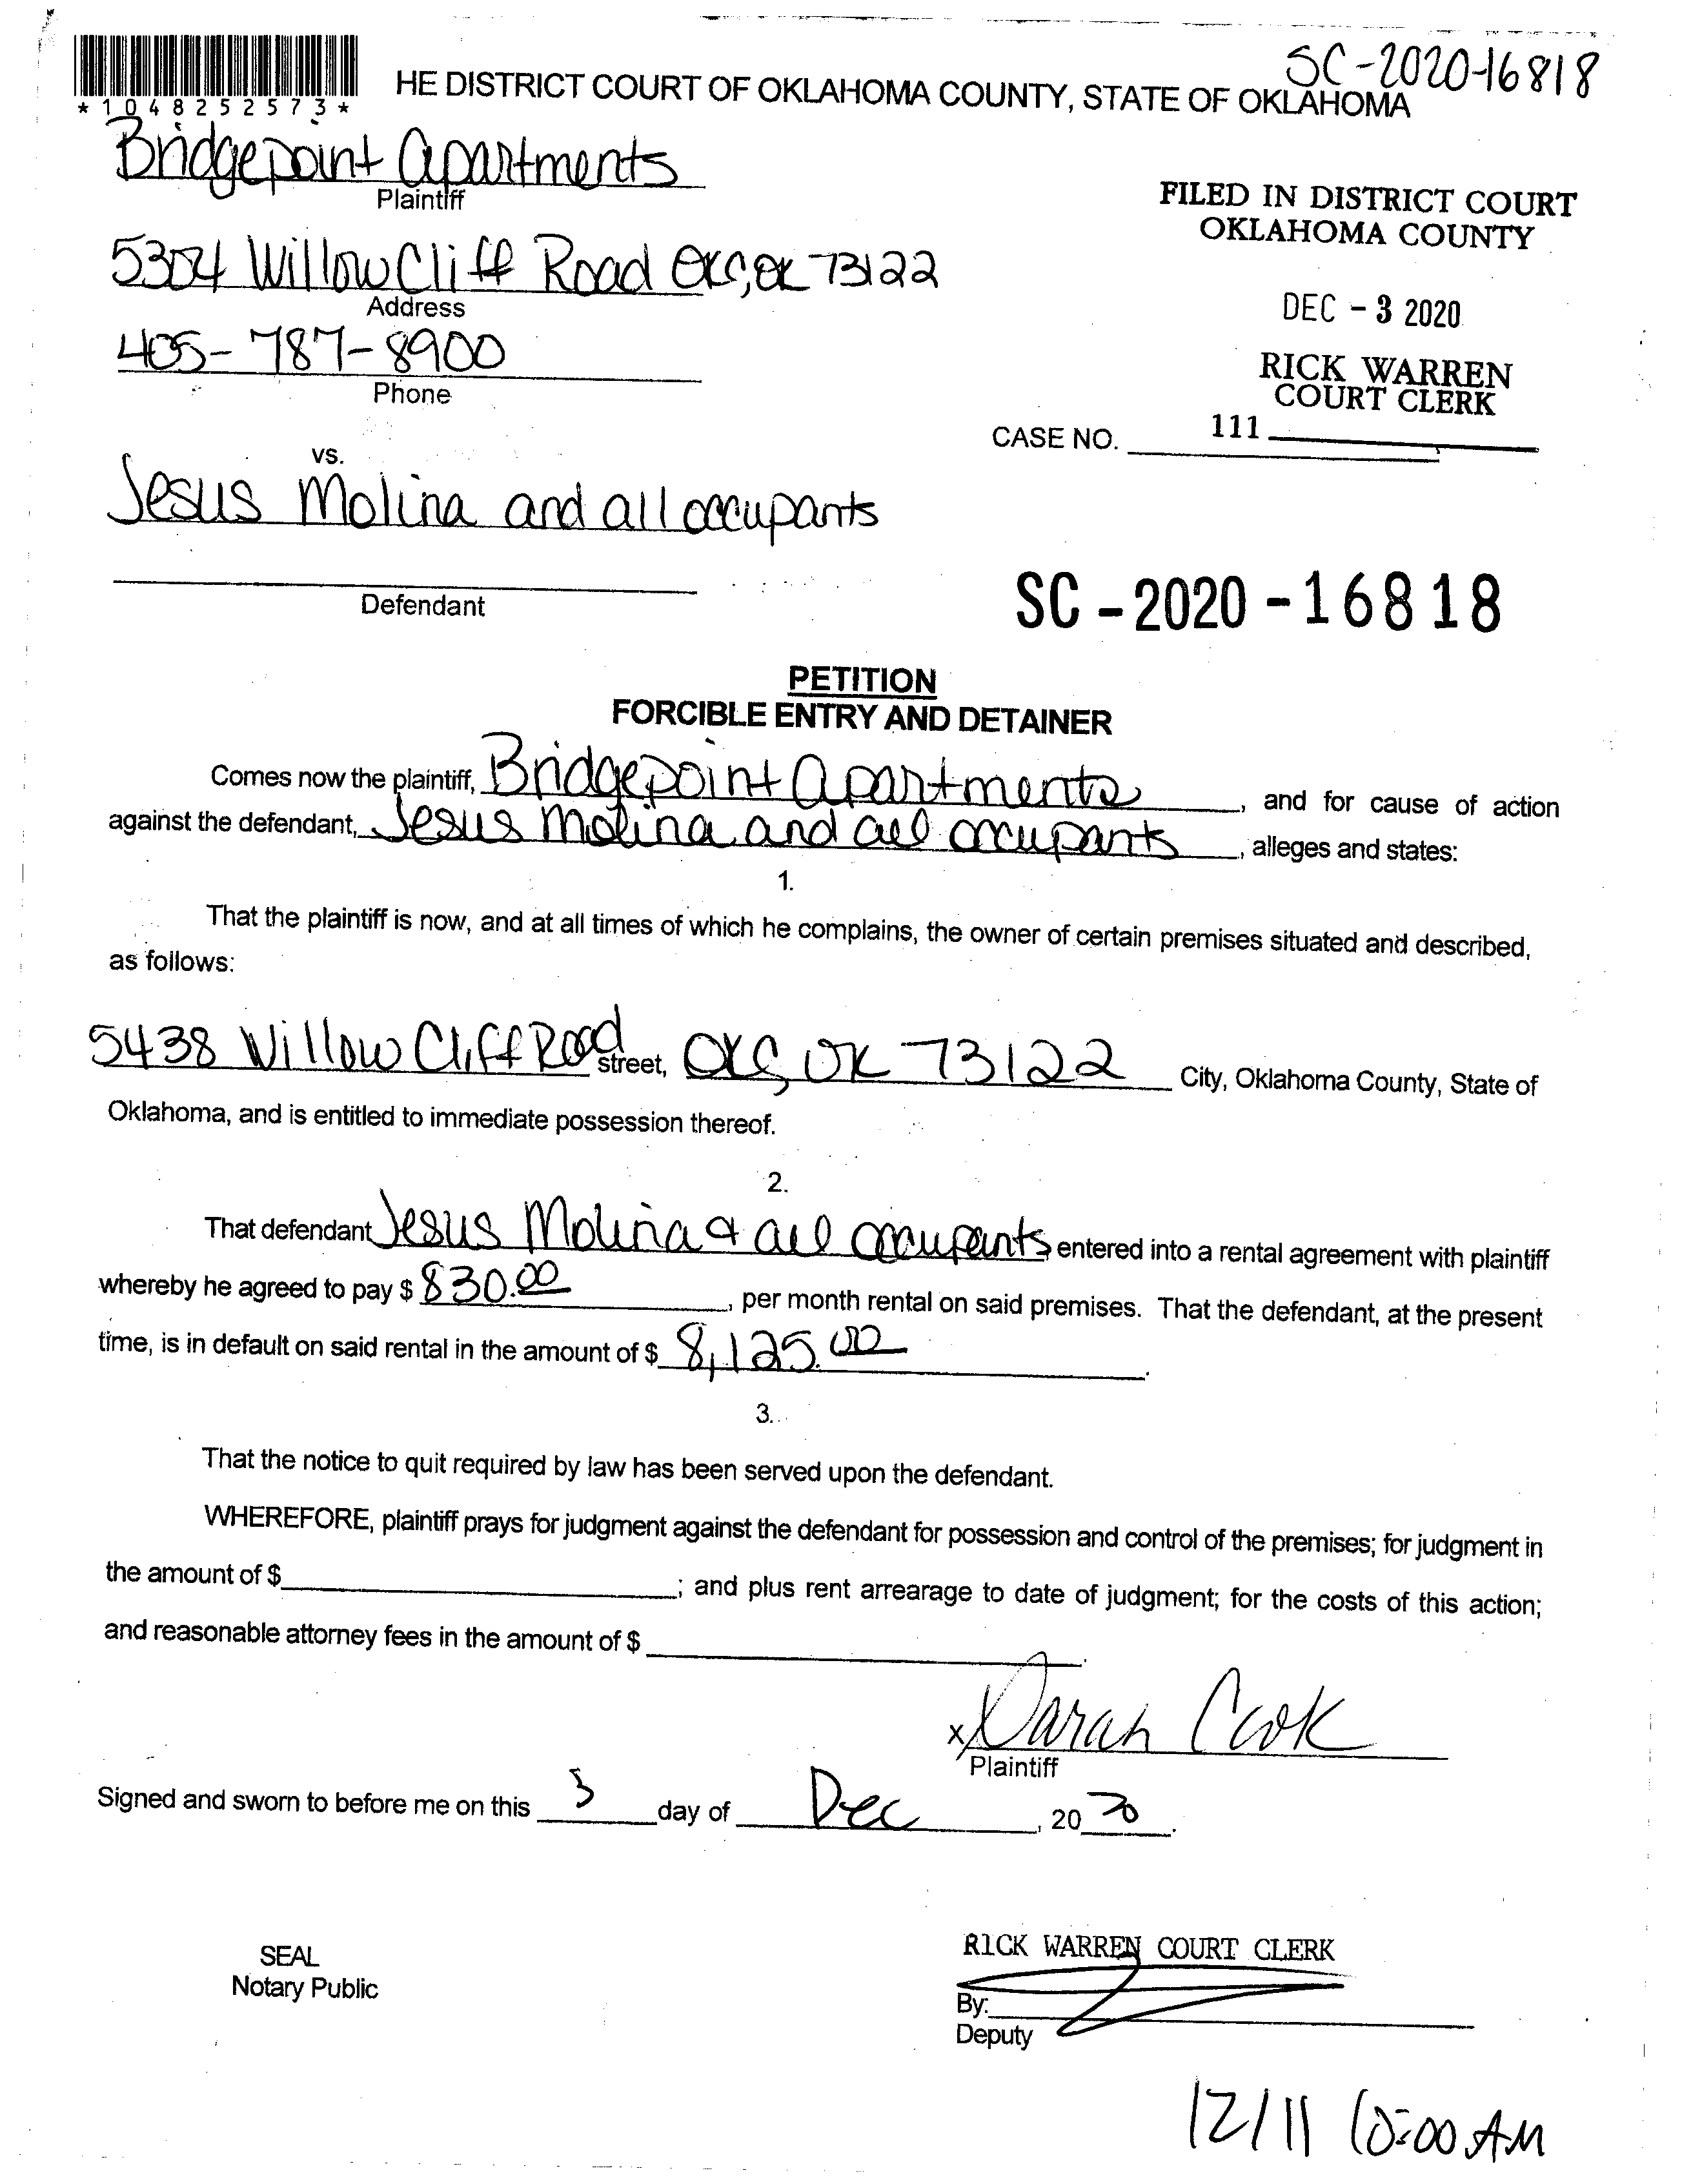 SC-2020-16818
*1048252573*
HE DISTRICT COURT OF OKLAHOMA COUNTY, STATE OF OKLAHOMA
Bridgepoint Apartments
Plaintiff
FILED IN DISTRICT COURT
OKLAHOMA COUNTY
5304 Willow Cliff Road OKC, OK 73122
Address
DEC - 3 2020
405-787-8900
Phone
RICK WARREN
COURT CLERK
CASE NO. 111
vs.
Jesus Molina and all occupants
Defendant
SC - 2020 - 16818
PETITION
FORCIBLE ENTRY AND DETAINER
Comes now the plaintiff, Bridgepoint Apartments, and for cause of action
against the defendant, Jesus Molina and all occupants, alleges and states:
1.
That the plaintiff is now, and at all times of which he complains, the owner of certain premises situated and described,
as follows:
5438 Willow Cliff Road street, OKC, OK 73122 City, Oklahoma County, State of
Oklahoma, and is entitled to immediate possession thereof.
2.
That defendant Jesus Molina & all occupants entered into a rental agreement with plaintiff
whereby he agreed to pay $ 830.00, per month rental on said premises. That the defendant, at the present
time, is in default on said rental in the amount of $ 8,125.00.
3.
That the notice to quit required by law has been served upon the defendant.
WHEREFORE, plaintiff prays for judgment against the defendant for possession and control of the premises; for judgment in
the amount of $ ; and plus rent arrearage to date of judgment; for the costs of this action;
and reasonable attorney fees in the amount of $ .
x Darah Cook
Plaintiff
Signed and sworn to before me on this 3 day of Dec, 2020.
SEAL
Notary Public
RICK WARREN COURT CLERK
By:
Deputy
12/11 10:00 AM